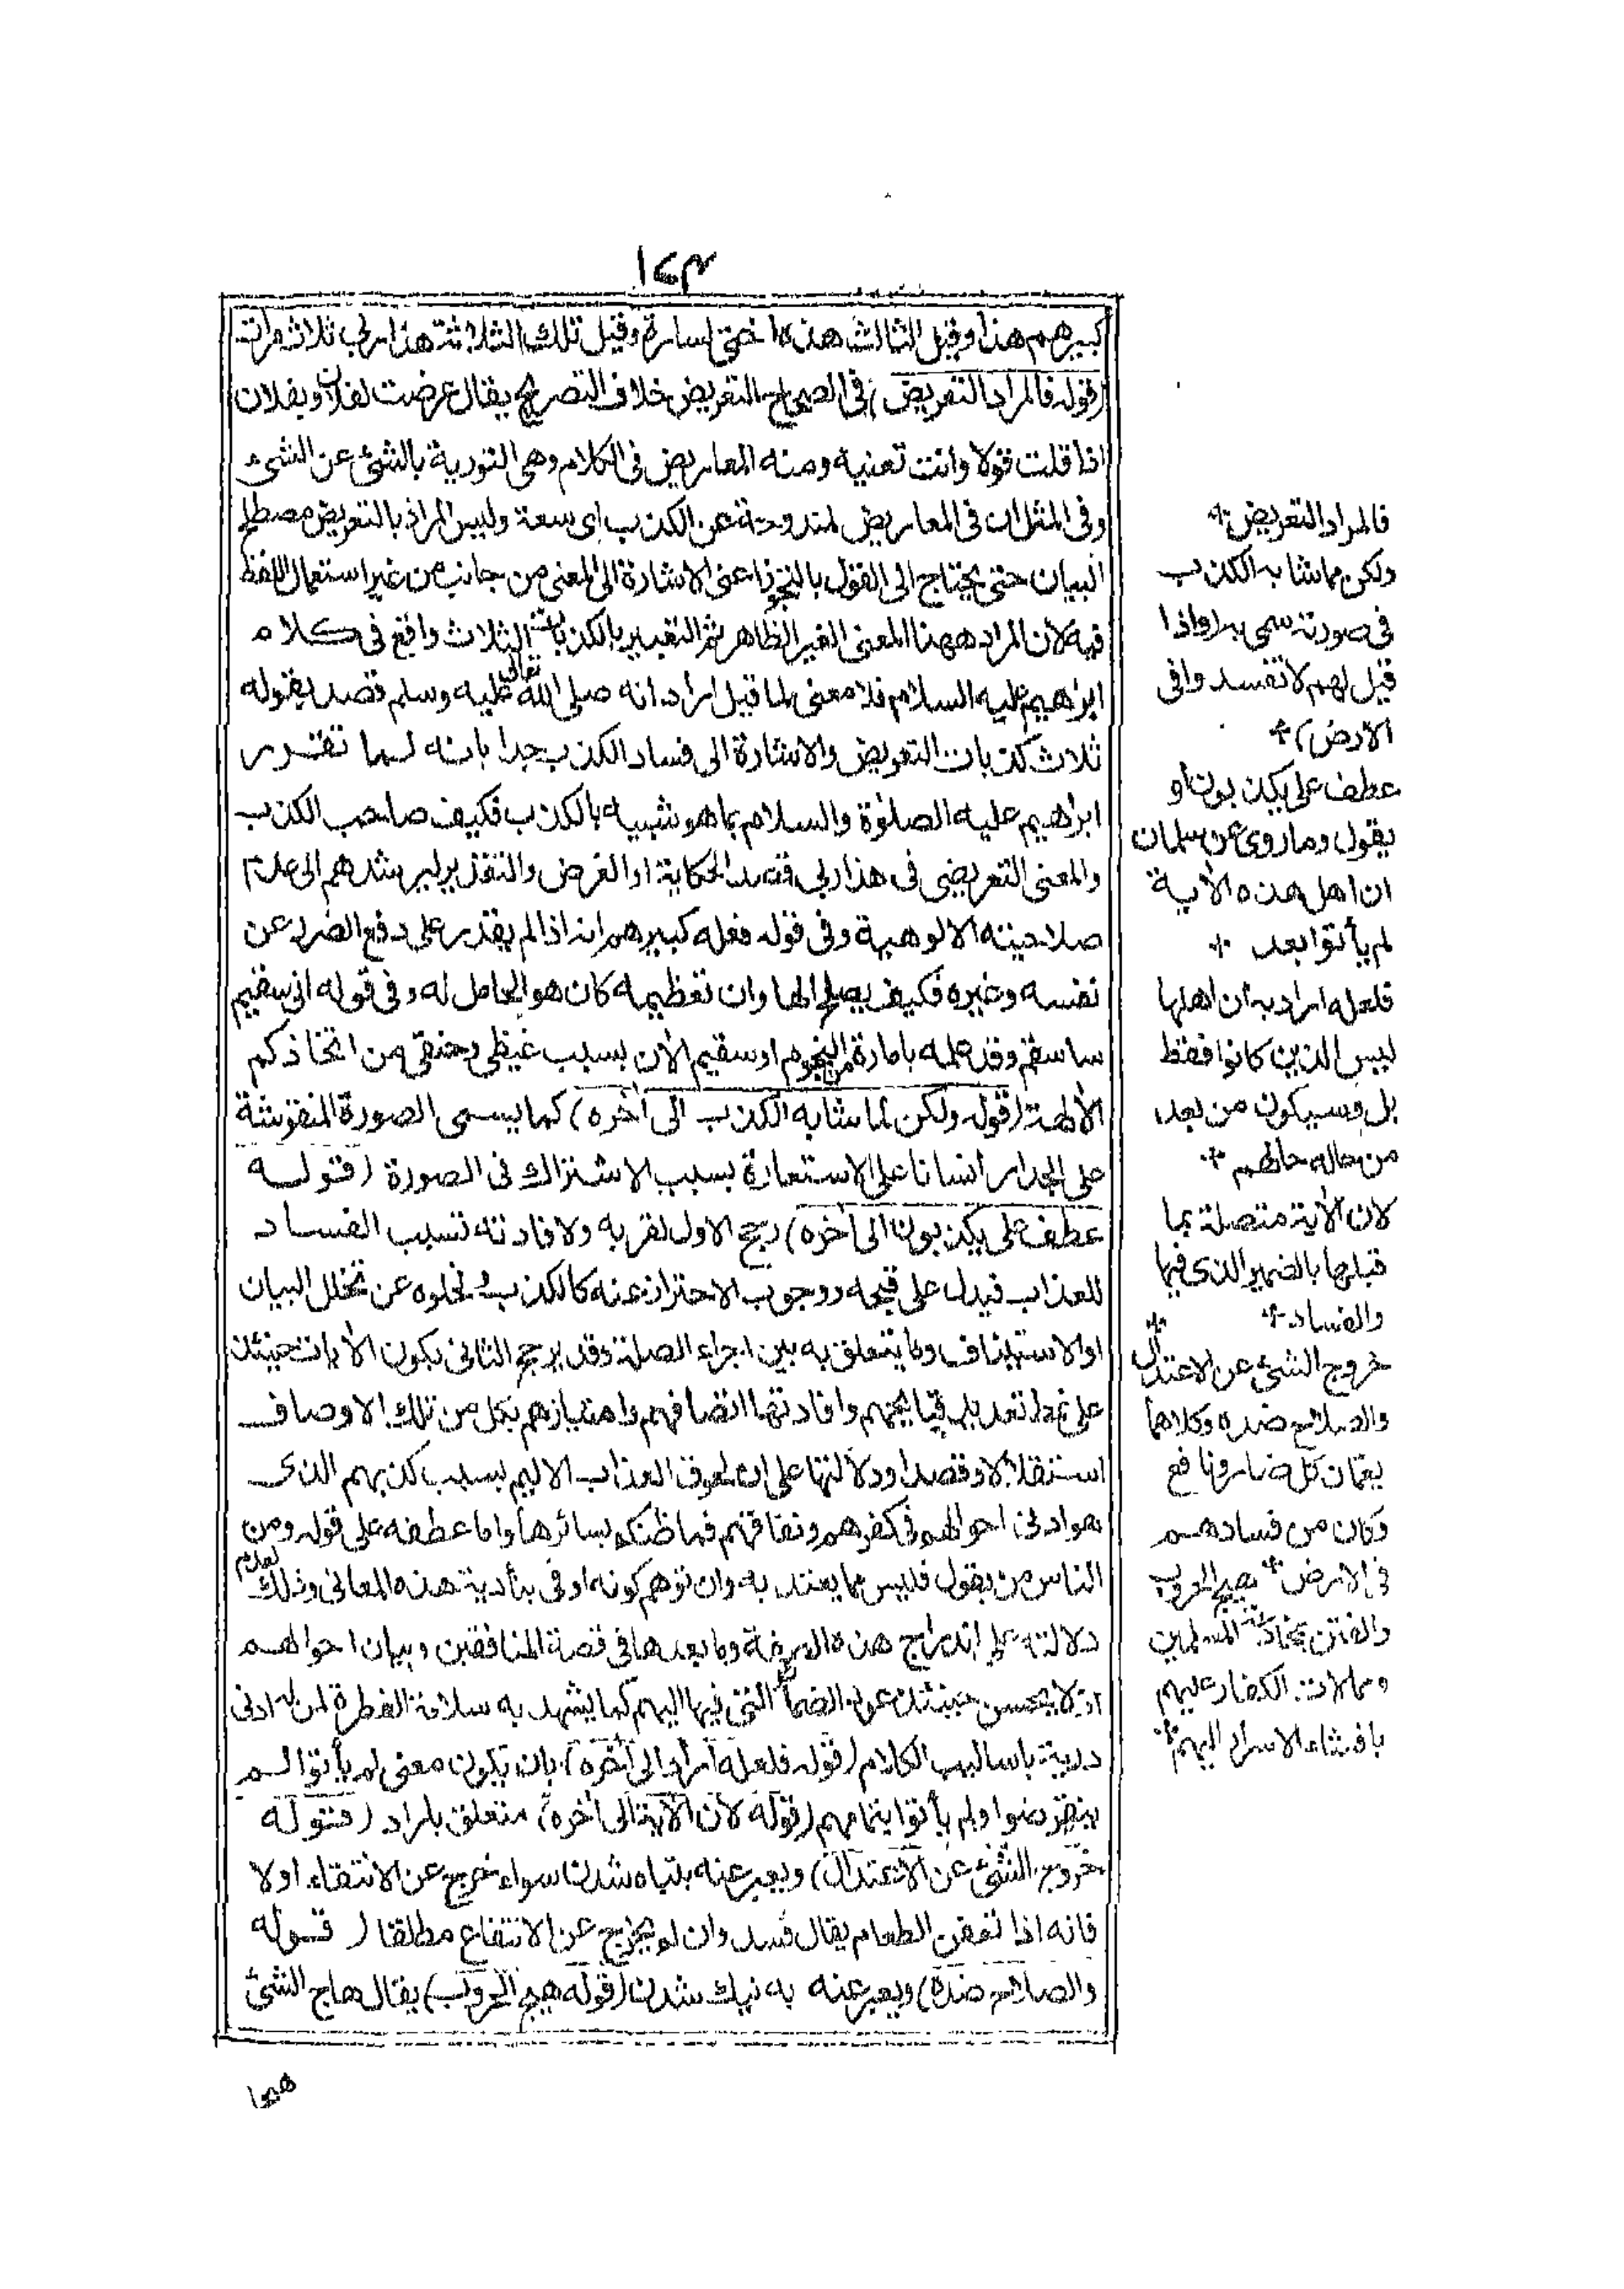 ١٤٣
كبيرهم هذا وقيل الثالث هذه اختى لسارة وقيل تلك الثلاثة هذا ربى ثلاث مرات
(قوله فالمراد التعريض) فى الصحاح التعريض خلاف التصريح يقال عرضت لفلان وبفلان
اذا قلت قولا وانت تعنيه ومنه المعاريض فى الكلام وهى التورية بالشئ عن الشئ
وفى المثل ان فى المعاريض لمندوحة عن الكذب اى سعة وليس المراد بالتعريض مصطلح
البيان حتى يحتاج الى القول بالتجوز اعنى الاشارة الى المعنى من جانب من غير استعمال اللفظ
فيه لان المراد ههنا المعنى الغير الظاهر ثم التعبير بالكذبات الثلاث واقع فى كلام
ابراهيم عليه السلام فلا معنى لما قيل اراد انه صلى الله تعالى عليه وسلم قصد بقوله
ثلاث كذبات التعريض والاشارة الى فساد الكذب جدا بانه لما تقرر
ابراهيم عليه الصلوة والسلام بما هو شبيه بالكذب فكيف صاحب الكذب
والمعنى التعريضى فى هذا ربى قصد الحكاية او الفرض والتقدير ليرشدهم الى عدم
صلاحيته الالوهية وفى قوله فعله كبيرهم انه اذا لم يقدر على دفع الضرر عن
نفسه وغيره فكيف يصلح الها وان تعظيمه كان هو الحامل له وفى قوله انى سقيم
ساسقم وقد علمه بامارة من النجوم او سقيم الآن بسبب غيظى وحنقى من اتخاذكم
الآلهة (قوله ولكن لما شابه الكذب الى آخره) كما يسمى الصورة المنقوشة
على الجدار انسانا على الاستعارة بسبب الاشتراك فى الصورة (قوله
عطف على يكذبون الى آخره) رجح الاول لقربه ولافادته تسبب الفساد
للعذاب فيدل على قبحه ووجوب الاحتراز عنه كالكذب ولخلوه عن تخلل البيان
او الاستيناف وما يتعلق به بين اجزاء الصلة وقد يرجح الثانى بكون الآيات حينئذ
على نمط تعديد قبايحهم وافادتها اتصافهم وامتيازهم بكل من تلك الاوصاف
استقلالا وقصدا ودلالتها على ان لحوق العذاب الاليم بسبب كذبهم الذى
هو ادنى احوالهم فى كفرهم ونفاقهم فما ظنك بسائرها واما عطفه على قوله ومن
الناس من يقول فليس مما يعتد به وان توهم كونه اوفى بتأدية هذه المعانى وذلك لعدم
دلالته على اندراج هذه الصفة وما بعدها فى قصة المنافقين وبيان احوالهم
اذ لا يحسن حينئذ عود الضمائر التى فيها اليهم كما يشهد به سلامة الفطرة لمن له ادنى
دربة باساليب الكلام (قوله فلعله اراد الى آخره) بان يكون معنى لم يأتوا لم
ينقرضوا ولم يأتوا بتمامهم (قوله لان الآية الى آخره) متعلق باراد (قوله
خروج الشئ عن الاعتدال) ويعبر عنه بتباه شدن سواء خرج عن الانتفاع او لا
فانه اذا تعفن الطعام يقال فسد وان لم يخرج عن الانتفاع مطلقا (قوله
والصلاح ضده) ويعبر عنه به نيك شدن (قوله هيج الحروب) يقال هاج الشئ
فالمراد التعريض
ولكن مما شابه الكذب
فى صورته سمى به (واذا
قيل لهم لا تفسدوا فى
الارض)
عطف على يكذبون او
يقول وما روى عن سلمان
ان اهل هذه الآية
لم يأتوا بعد
فلعله اراد به ان اهلها
ليس الذين كانوا فقط
بل وسيكون من بعد
من حاله حالهم
لان الآية متصلة بما
قبلها بالضمير الذى فيها
والفساد
خروج الشئ عن الاعتدال
والصلاح ضده وكلاهما
يعمان كل ضار ونافع
وكان من فسادهم
فى الارض هيج الحروب
والفتن بمخادعة المسلمين
وممالات الكفار عليهم
بافشاء الاسرار اليهم